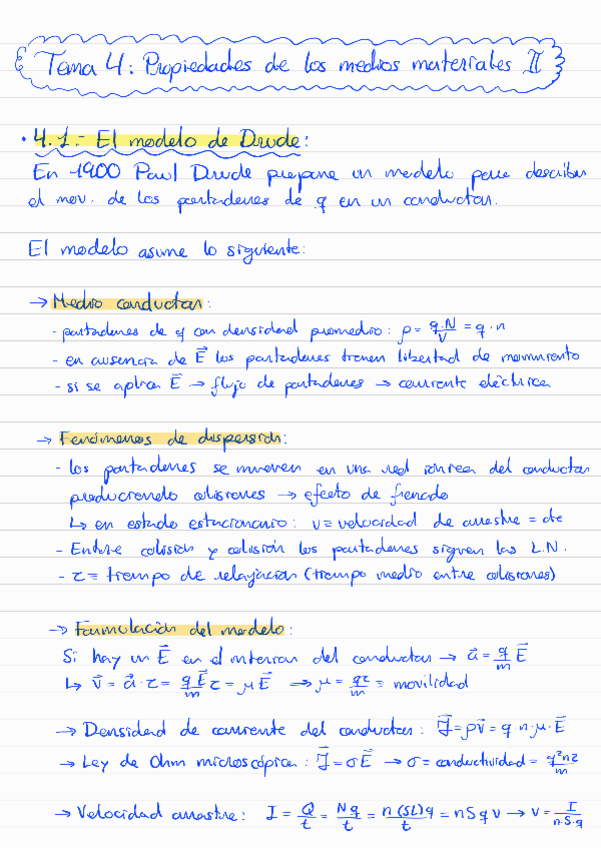 Tema 4: Propiedades de los medios materiales II
· 4.1.- El modelo de Drude:
En 1900 Paul Drude propone un modelo para describir
el mov. de los portadores de q en un conductor.
El modelo asume lo siguiente:
→ Medio conductor:
- portadores de q con densidad promedio: ρ = q·N/V = q·n
- en ausencia de E⃗ los portadores tienen libertad de movimiento
- si se aplica E⃗ → flujo de portadores → corriente eléctrica
→ Fenómenos de dispersión:
- los portadores se mueven en una red iónica del conductor
produciendo colisiones → efecto de frenado
↳ en estado estacionario: v = velocidad de arrastre = cte
- Entre colisión y colisión los portadores siguen las L.N.
- τ = tiempo de relajación (tiempo medio entre colisiones)
→ Formulación del modelo:
Si hay un E⃗ en el interior del conductor → a⃗ = q/m E⃗
↳ v⃗ = a⃗·τ = qE⃗/m τ = μE⃗ ⇒ μ = qτ/m = movilidad
→ Densidad de corriente del conductor: J⃗ = ρv⃗ = q n·μ·E⃗
→ Ley de Ohm microscópica: J⃗ = σE⃗ → σ = conductividad = q²nτ/m
→ Velocidad arrastre: I = Q/t = Nq/t = n(SL)q/t = nSqv → v = I/n·S·q